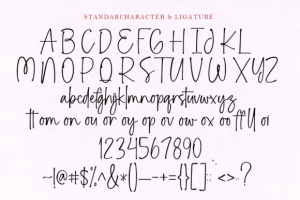 STANDARCHARACTER & LIGATURE
ABCDEFGHIJKL
MNOPQRSTUVWXYZ
abcdefghijklmnopqrstuvwxyz
tt om on ou or oy op ov ow ox oo ff ll oi
1234567890
~!@#$%^&*()_—-+={}[]:: <>.?